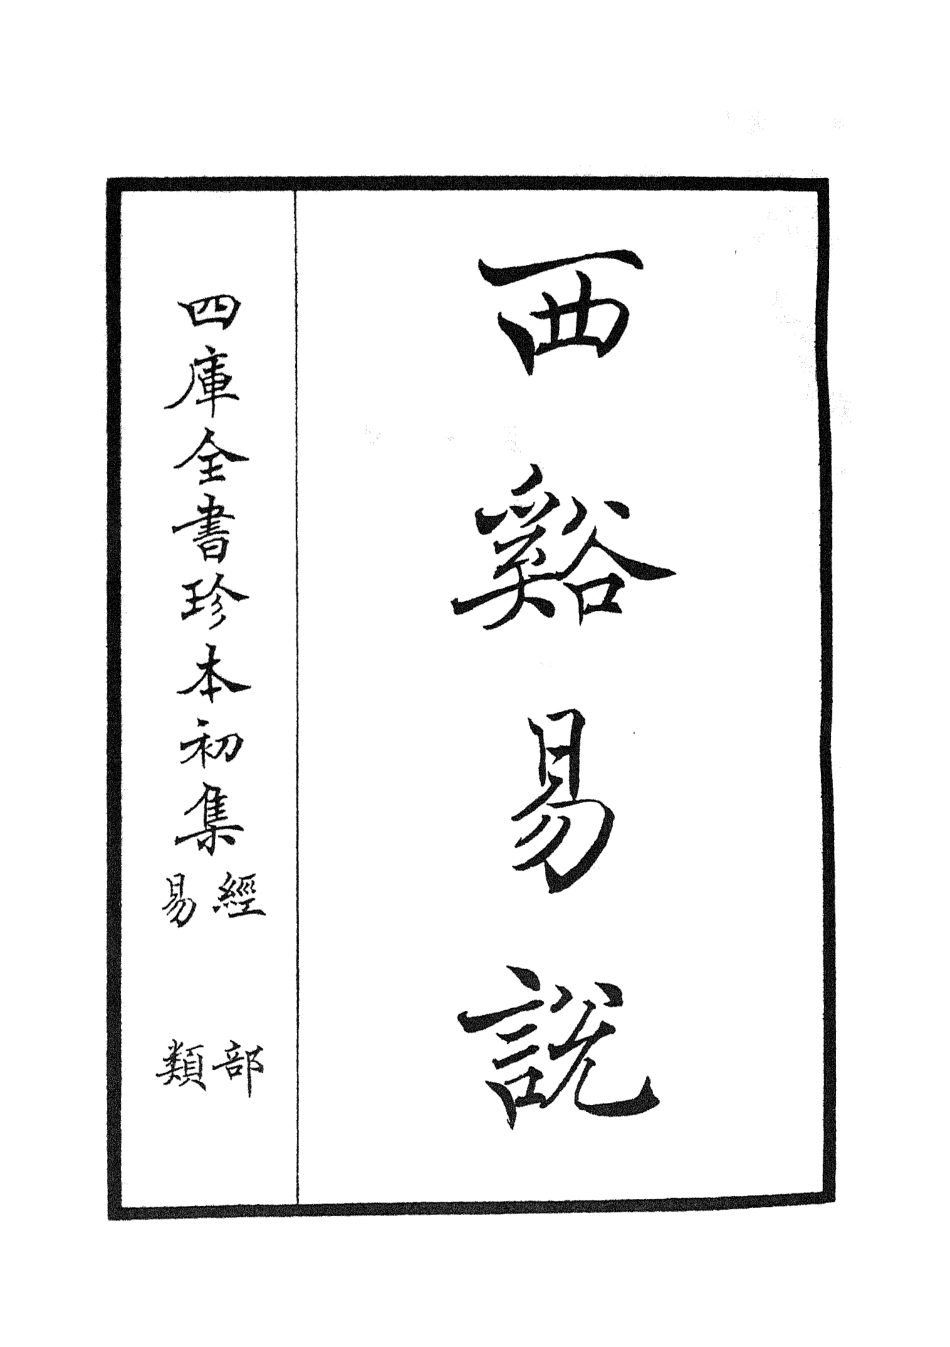 西谿易説
四庫全書珍本初集
經部
易類